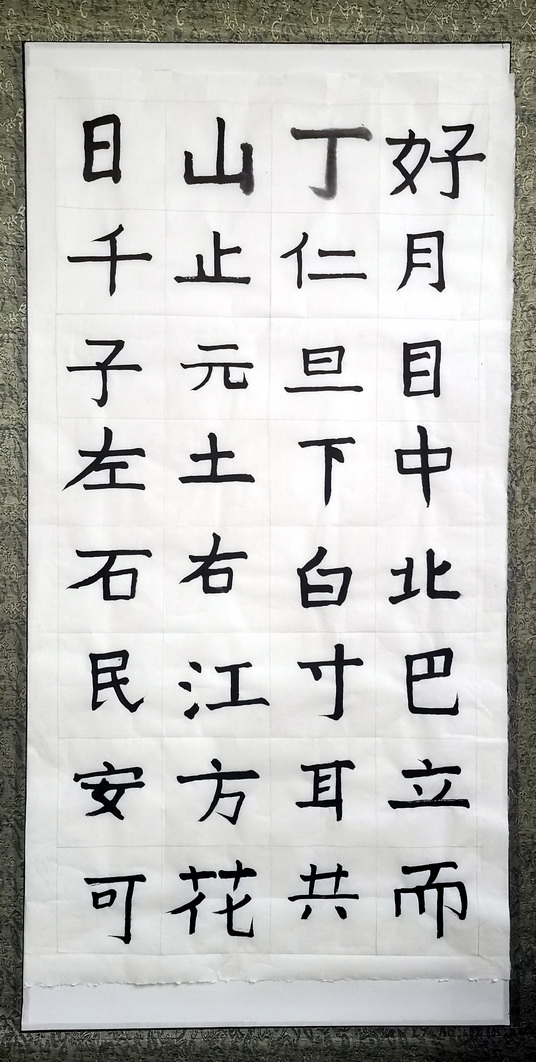 好月目中北巴立而
丁仁旦下白寸耳共
山止元土右江方花
日千子左石民安可